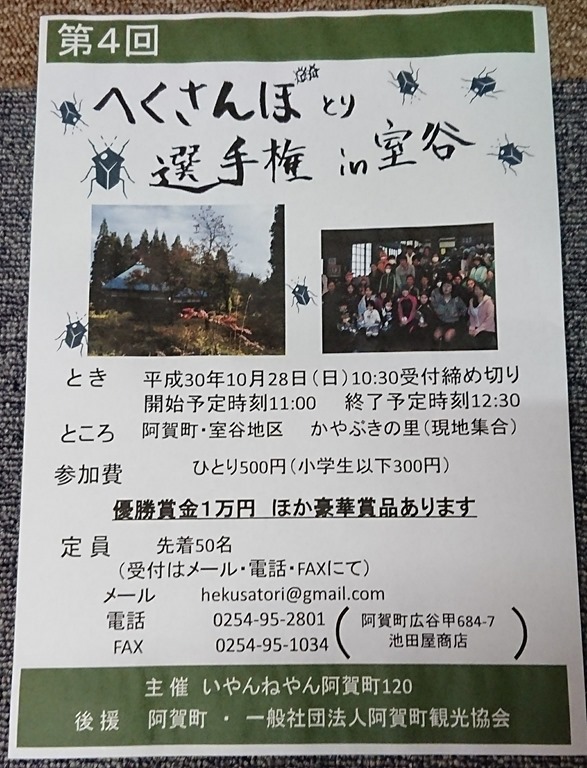 第4回
へくさんぼとり
選手権 in 室谷
とき 平成30年10月28日(日)10:30受付締め切り
開始予定時刻11:00 終了予定時刻12:30
ところ 阿賀町・室谷地区 かやぶきの里(現地集合)
参加費 ひとり500円(小学生以下300円)
優勝賞金1万円 ほか豪華賞品あります
定員 先着50名
(受付はメール・電話・FAXにて)
メール hekusatori@gmail.com
電話 0254-95-2801 (阿賀町広谷甲684-7
FAX 0254-95-1034 池田屋商店)
主催 いやんねやん阿賀町120
後援 阿賀町・一般社団法人阿賀町観光協会